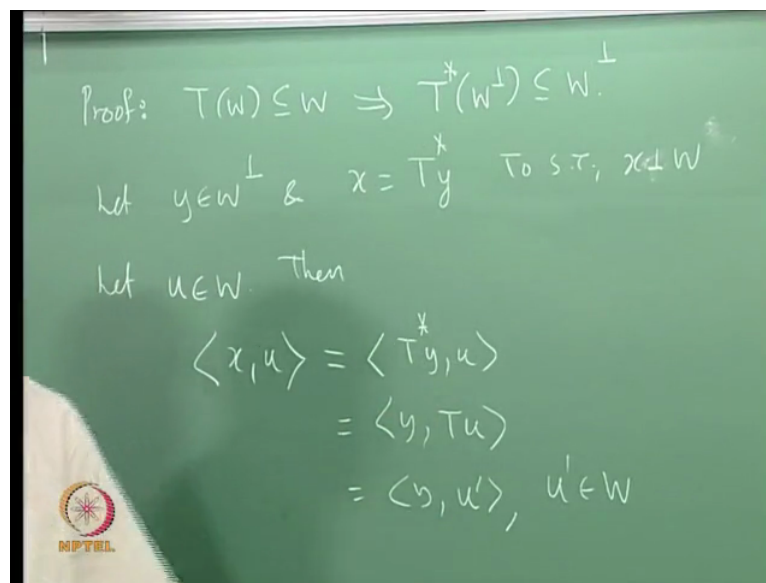 Proof: T(W) ⊆ W ⇒ T*(W⊥) ⊆ W⊥.
Let y ∈ W⊥ & x = T*y To S.T., x ⊥ W
Let u ∈ W. Then
⟨x, u⟩ = ⟨T*y, u⟩
= ⟨y, Tu⟩
= ⟨y, u'⟩, u' ∈ W
NPTEL